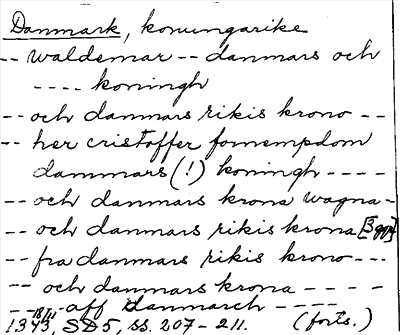 Danmark, konungarike
-- waldemar -- danmars och
---- koningh
-- och danmars rikis krono --
-- her cristoffer fornempdom
dammars (!) koningh ----
-- och danmars krona wagna -
-- och danmars rikis krona [3 ggr]
-- fra danmars rikis krono ---
-- och danmars krona ----
-- aff danmarch ----
1343, 18/11, SD 5, ss. 207-211. (forts.)